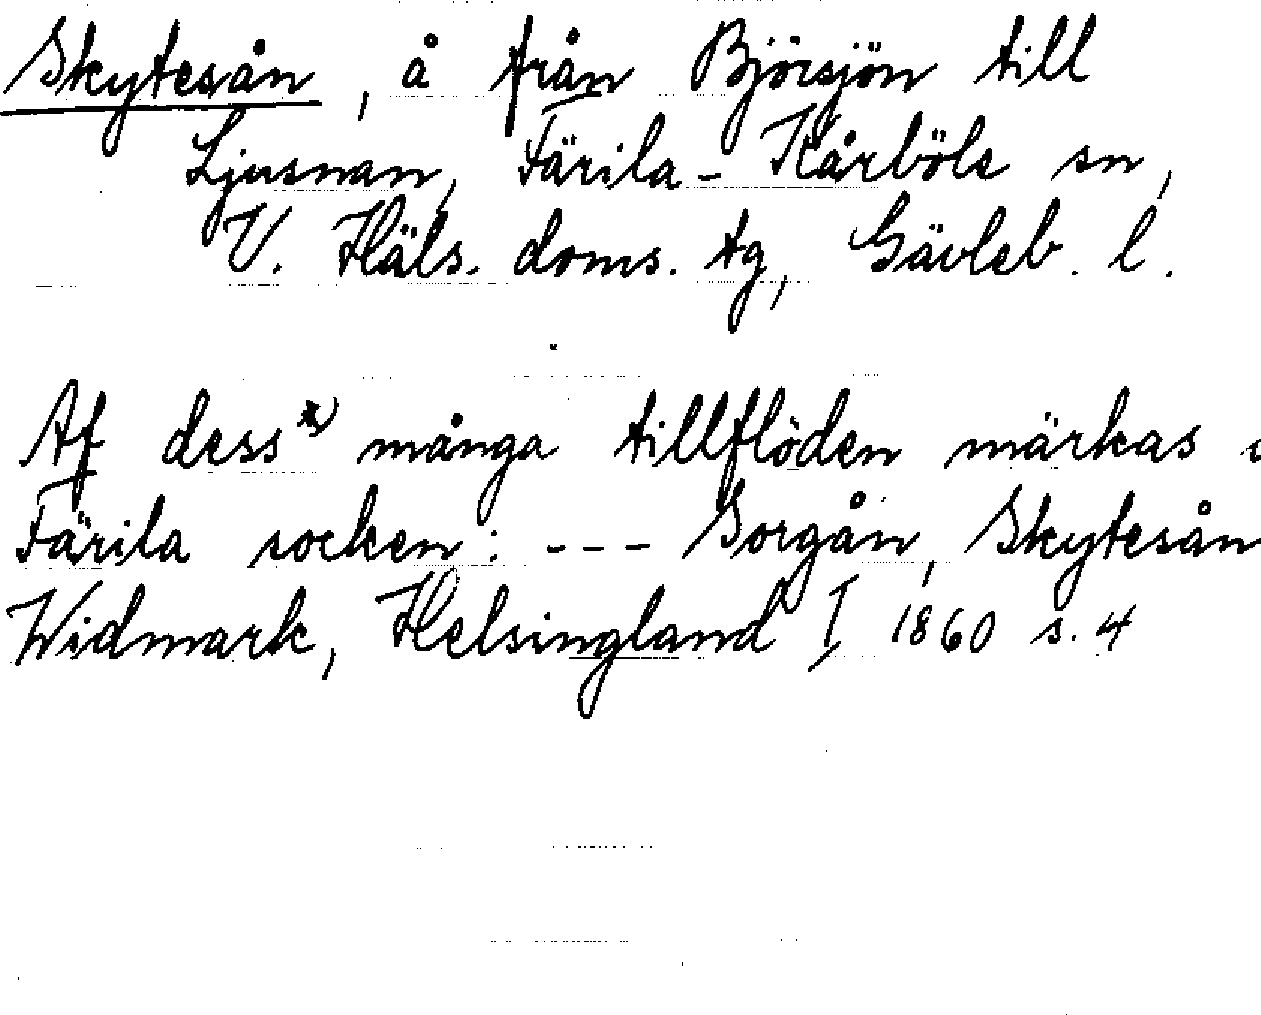 Skytesån, å från Björsjön till
Ljusnan, Färila-Kårböle sn,
V. Häls. doms. tg, Gävleb. l.
Af dess x) många tillflöden märkas i
Färila socken: --- Gorgån, Skytesån
Widmark, Helsingland I 1860 s. 4